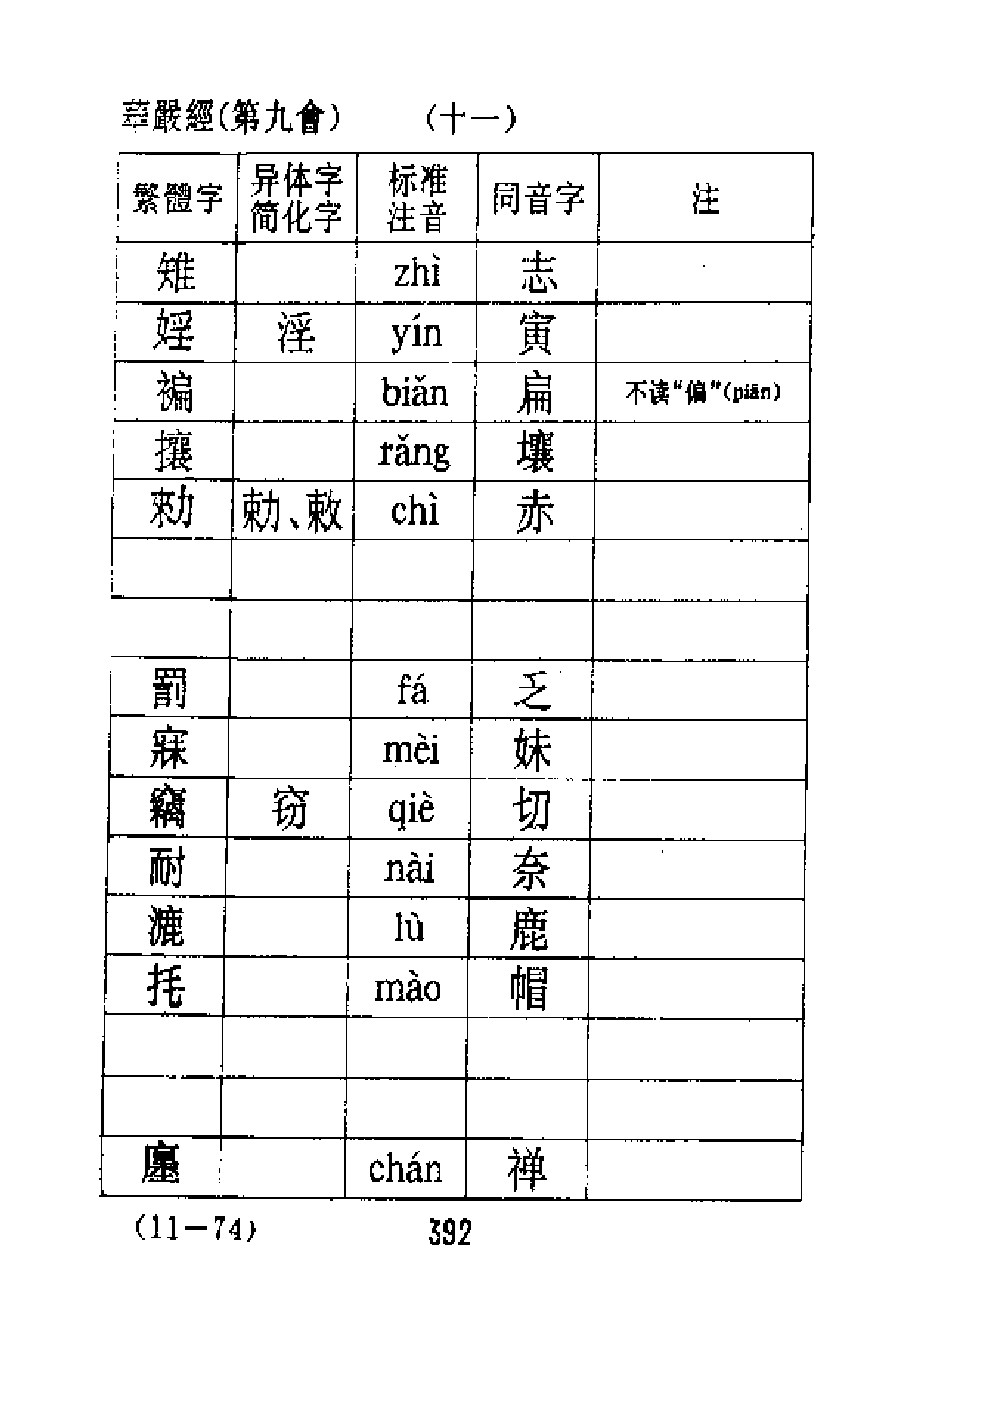 華嚴經(第九會) (十一)
繁體字 异体字 简化字 标准注音 同音字 注
雉 zhì 志
婬 淫 yín 寅
褊 biǎn 扁 不读“偏”(piān)
攘 rǎng 壤
勑 勅、敕 chì 赤
罰 fá 乏
寐 mèi 妹
竊 窃 qiè 切
耐 nài 奈
漉 lù 鹿
托 mào 帽
廛 chán 禅
(11－74) 392